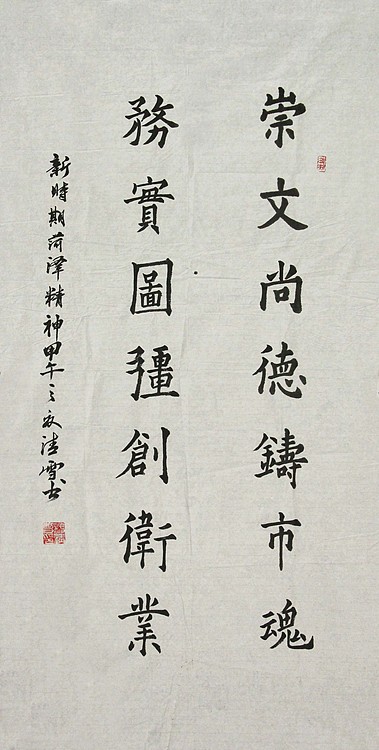 崇文尚德鑄市魂
務實圖彊創衛業
新時期菏澤精神甲午之夏清雪书